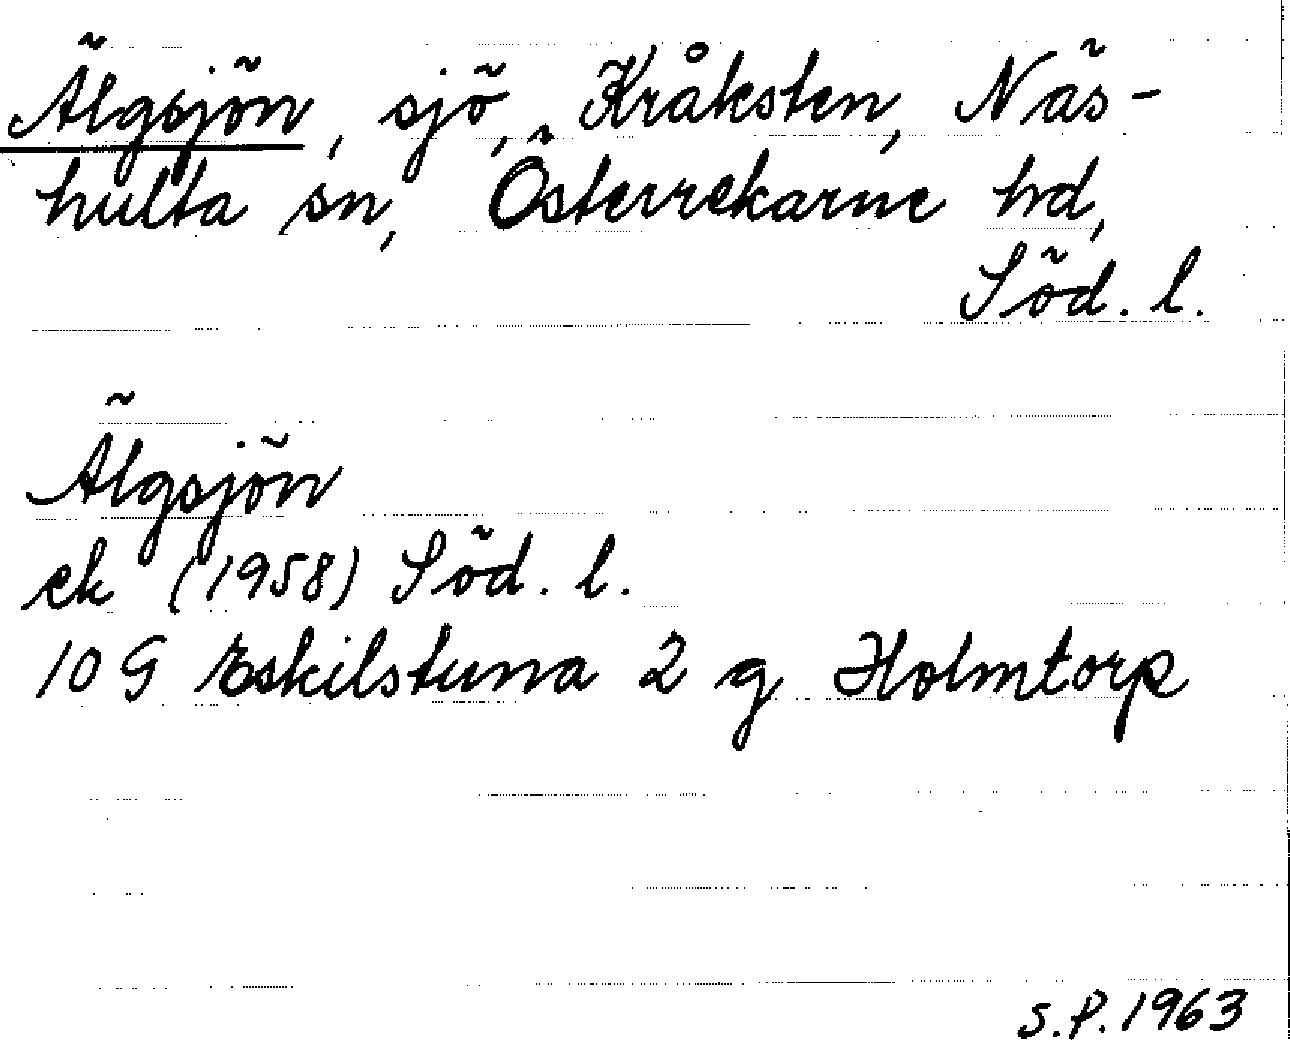 Älgsjön, sjö, Kråksten, Näs-
hulta sn, Österrekarne hd,
Söd. l.
Älgsjön
ek (1958) Söd. l.
10 G Eskilstuna 2 g Holmtorp
S.P. 1963